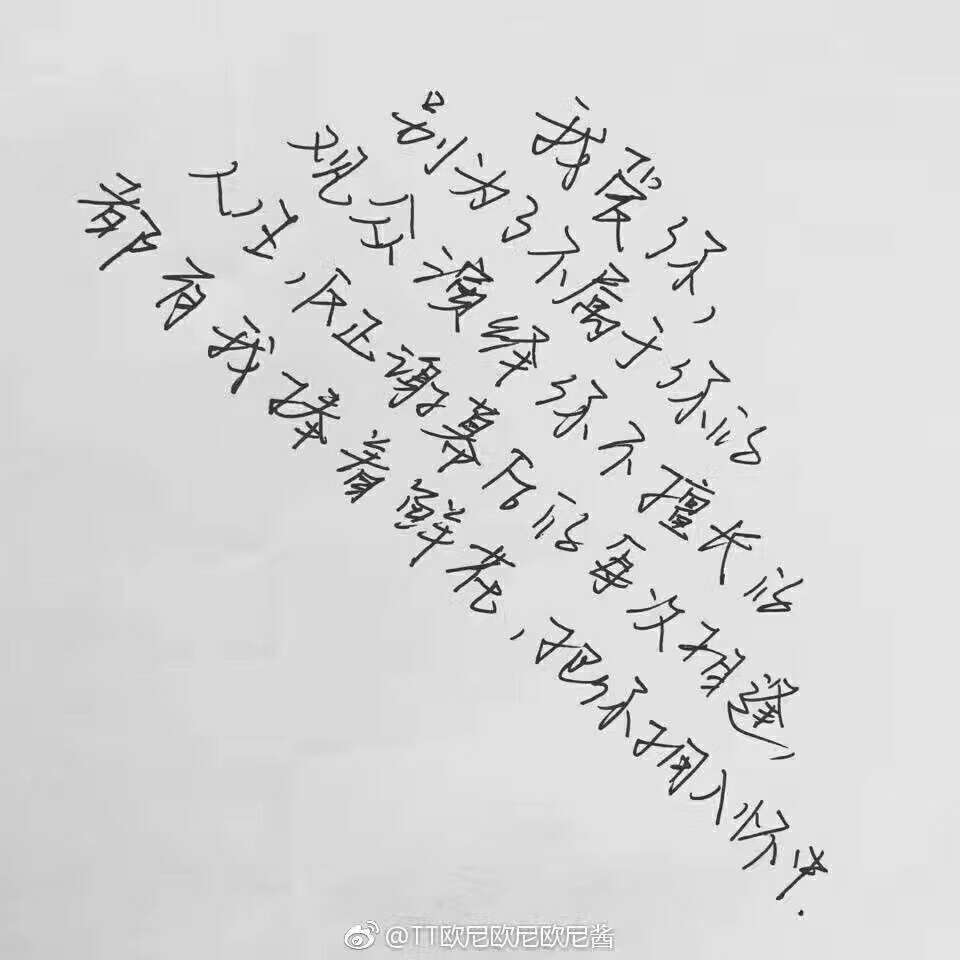 我爱你,
别为了不属于你的
观众演绎你不擅长的
人生,反正谢幕后的每次相逢,
都有我捧着鲜花,把你拥入怀中.
@TT欧尼欧尼欧尼酱